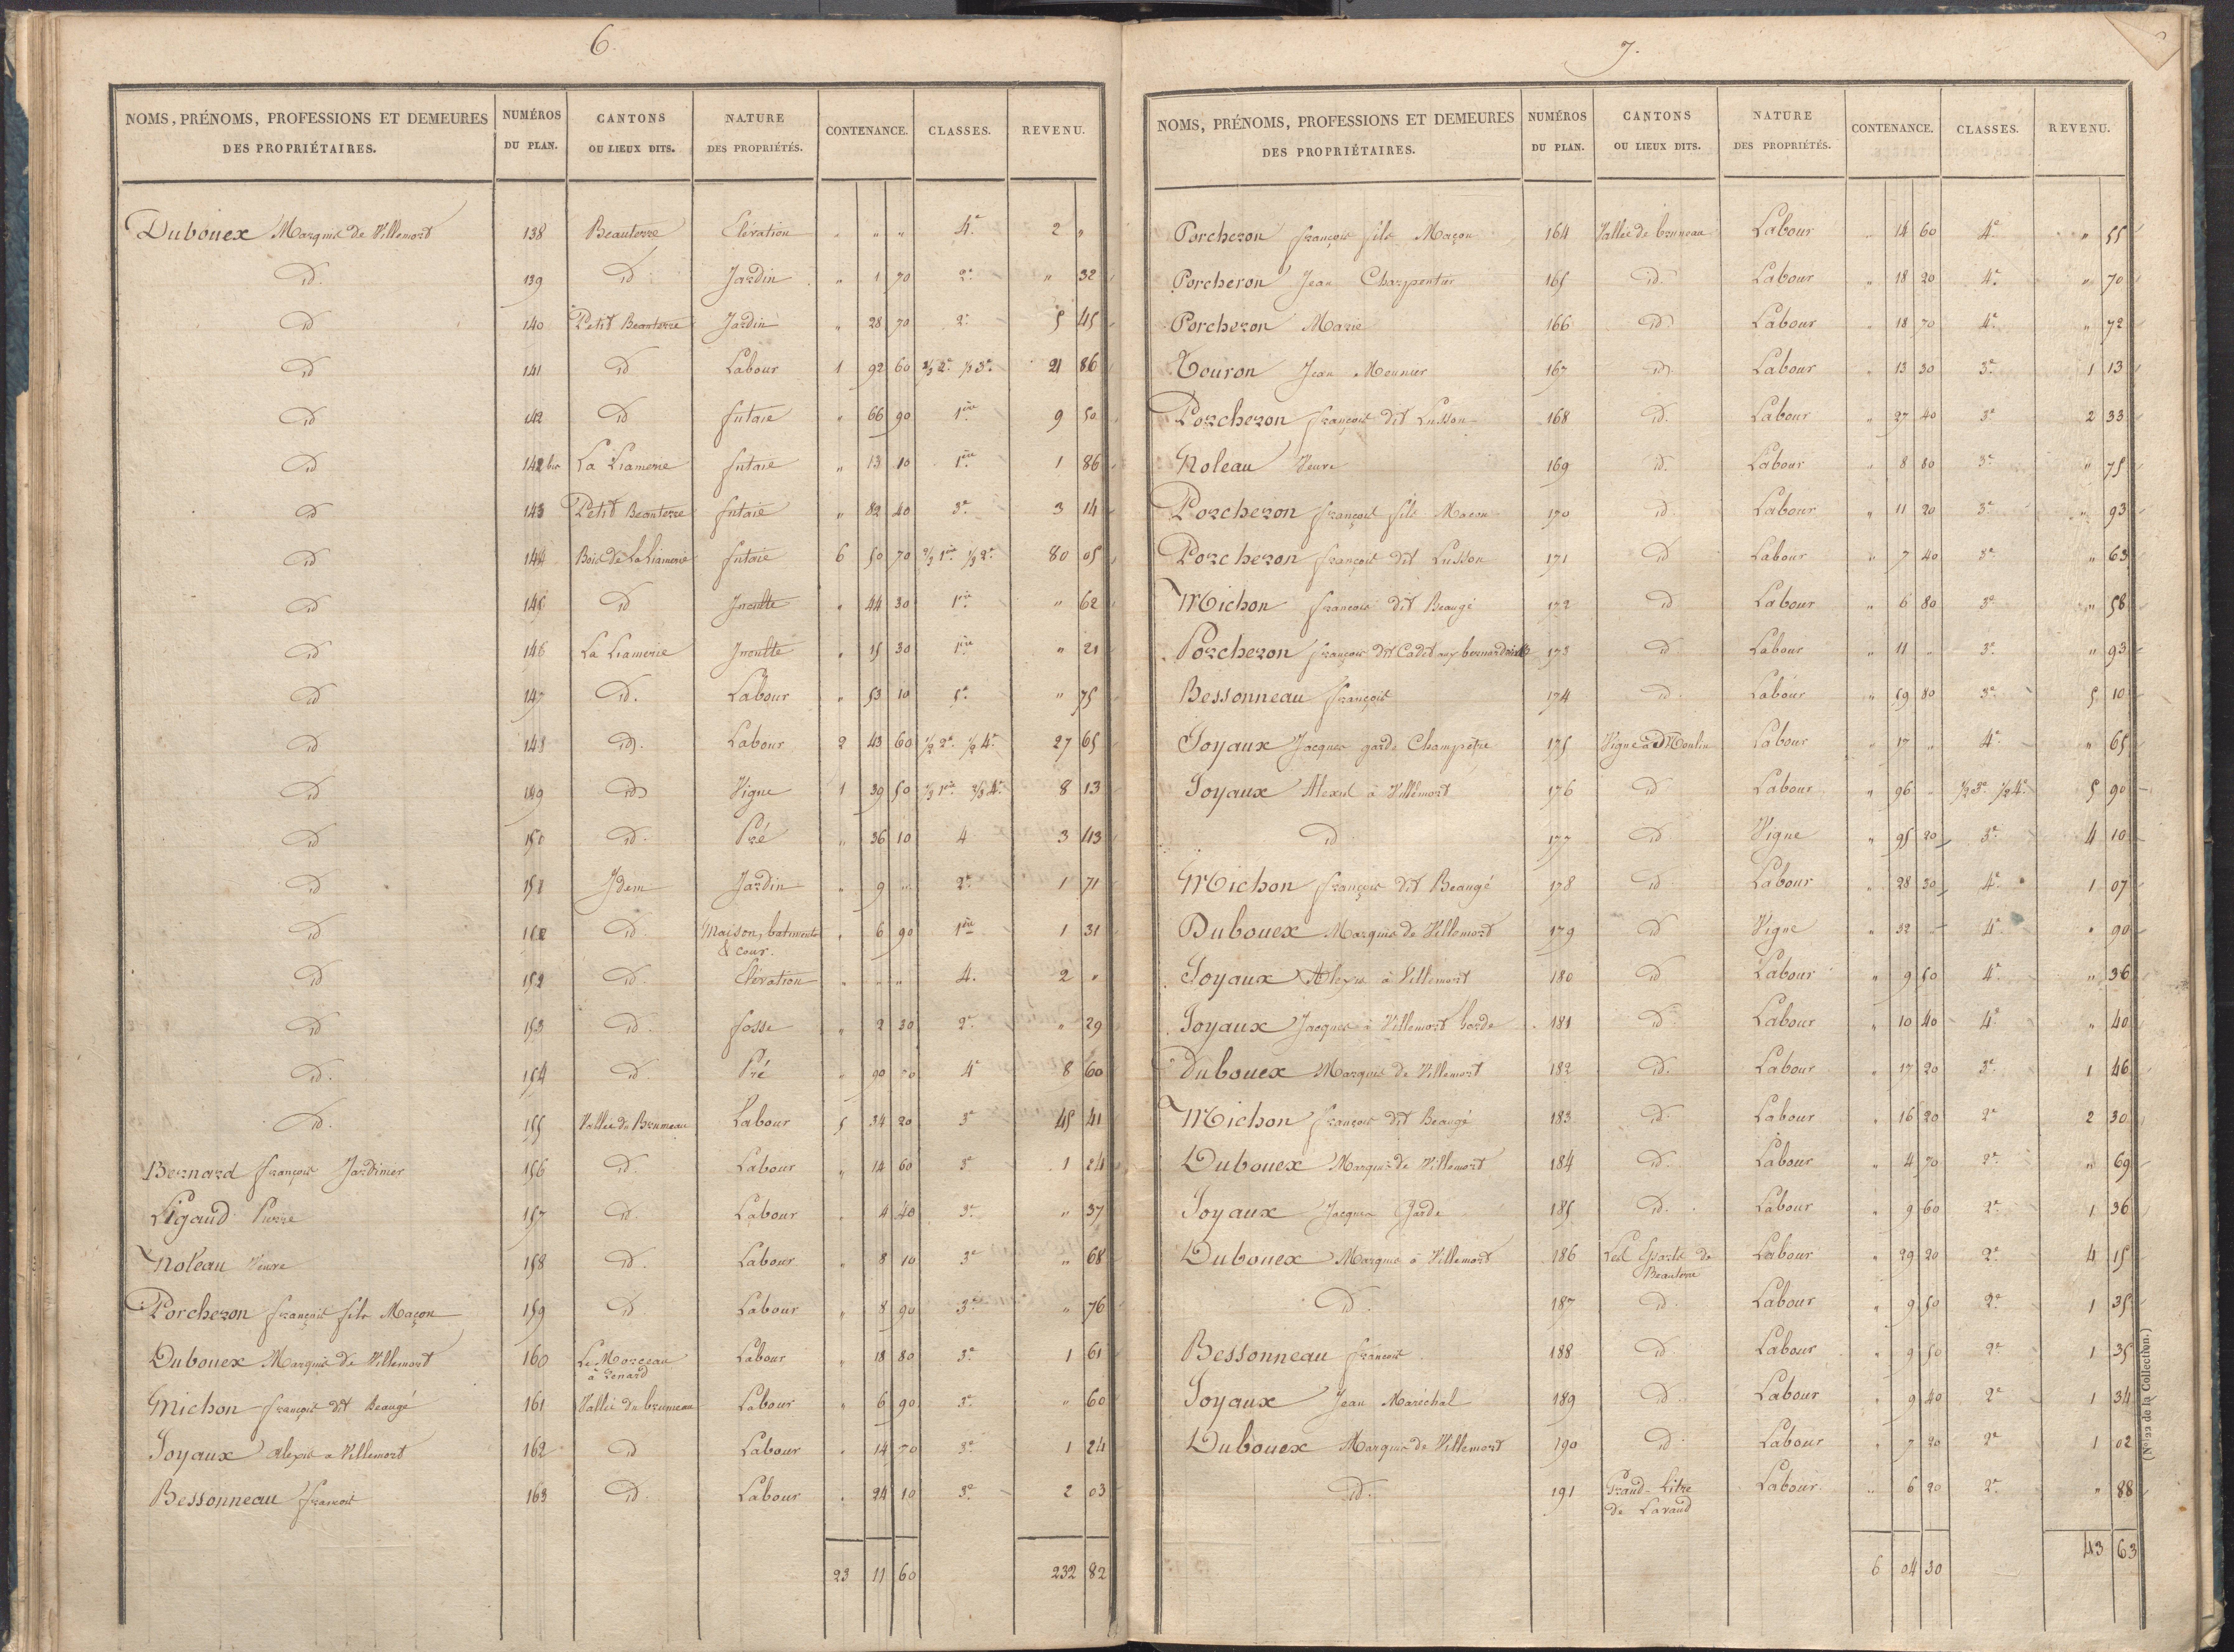 6.
NOMS, PRÉNOMS, PROFESSIONS ET DEMEURES DES PROPRIÉTAIRES. NUMÉROS DU PLAN. CANTONS OU LIEUX DITS. NATURE DES PROPRIÉTÉS. CONTENANCE. CLASSES. REVENU.
Dubouex Marquis de Villemort 138 Beauterre Elévation " " " 4e 2 "
id. 139 id. Jardin " 1 70 2e " 32
id 140 Petit Beauterre Jardin " 28 70 2e 5 45
id 141 id Labour 1 92 60 2/3 2e 1/3 3e 21 86
id 142 id futaie " 66 90 1ère 9 50
id 142 bis La Liamerie futaie " 13 10 1ère 1 86
id 143 Petit Beauterre futaie " 82 40 3e 3 14
id 144 Bois de La Liamerie futaie 6 50 70 2/3 1ère 1/3 2e 80 05
id 145 id Inculte " 44 30 1ère " 62
id 146 La Liamerie Inculte " 15 30 1ère " 21
id 147 id. Labour " 53 10 5e " 75
id 148 id. Labour 2 43 60 1/2 2e 1/2 4e 27 65
id 149 id Vigne 1 39 50 1/3 1ère 2/3 4e 8 13
id 150 id. Pré " 36 10 4 3 43
id 151 Idem Jardin " 9 " 2e 1 71
id id. Maison, batiments & cour. " 6 90 1ère 1 31
id 152 id. Elévation " " " 4. 2 "
id 153 id. fosse " 2 30 2e " 29
id. 154 id Pré " 90 50 4e 8 60
id. 155 Vallée du Bruneau Labour 5 34 20 3e 45 41
Bernard françois Jardinier 156 id. Labour " 14 60 3e 1 24
Ligaud Pierre 157 id. Labour " 4 40 3e " 37
Noleau Veuve 158 id. Labour " 8 10 3e " 68
Porcheron françois fils Maçon 159 id Labour " 8 90 3e " 76
Dubouex Marquis de Villemort 160 Le Morceau à Renard Labour " 18 80 3e 1 61
Michon françois dit Beaugé 161 Vallée du bruneau Labour " 6 90 3e " 60
Joyaux alexis a Villemort 162 id Labour " 14 70 3e 1 24
Bessonneau françois 163 id. Labour " 24 10 3e 2 03
23 11 60 232 82
7.
NOMS, PRÉNOMS, PROFESSIONS ET DEMEURES DES PROPRIÉTAIRES. NUMÉROS DU PLAN. CANTONS OU LIEUX DITS. NATURE DES PROPRIÉTÉS. CONTENANCE. CLASSES. REVENU.
Porcheron françois fils Maçon 164 Vallée de bruneau Labour 14 60 4e " 55
Porcheron Jean Charpentier 165 id Labour " 18 20 4e " 70
Porcheron Marie 166 id Labour " 18 70 4e " 72
Touron Jean Meunier 167 id Labour " 13 30 3e 1 13
Porcheron françois dit Lusson 168 id. Labour " 27 40 3e 2 33
Noleau Veuve 169 id. Labour " 8 80 3e " 75
Porcheron françois fils Macon 170 id Labour " 11 20 3e " 93
Porcheron françois dit Lusson 171 id Labour " 7 40 3e " 63
Michon françois dit Beaugé 172 id Labour " 6 80 3e " 58
Porcheron françois dit Cadet aux bernardières 173 id Labour " 11 " 3e " 93
Bessonneau françois 174 id. Labour " 59 80 3e 5 10
Joyaux Jacques garde Champêtre 175 Vigne à Moulin Labour " 17 " 4e " 65
Joyaux Alexis à Villemort 176 id Labour " 96 " 1/2 3e 1/2 4e 5 90
id 177 id Vigne " 95 20 3e 4 10
Michon françois dit Beaugé 178 id Labour " 28 30 4e 1 07
Dubouex Marquis de Villemort 179 id Vigne " 32 " 4e " 90
Joyaux Alexis à Villemort 180 id Labour " 9 50 4e " 36
Joyaux Jacques à Villemort Garde 181 id. Labour " 10 40 4e " 40
Dubouex Marquis de Villemort 182 id. Labour " 17 20 3e 1 46
Michon françois dit Beaugé 183 id. Labour " 16 20 2e 2 30
Dubouex Marquis de Villemort 184 id. Labour " 4 70 2e " 69
Joyaux Jacques Garde 185 id. Labour " 9 60 2e 1 36
Dubouex Marquis à Villemort 186 Les Essarts de Beauterre Labour " 29 20 2e 4 15
id. 187 id. Labour " 9 50 2e 1 35
Bessonneau françois 188 id Labour " 9 50 2e 1 35
Joyaux Jean Maréchal 189 id. Labour " 9 40 2e 1 34
Dubouex Marquis de Villemort 190 id. Labour " 7 20 2e 1 02
id. 191 Grand-Litre de Lavaud Labour " 6 20 2e " 88
6 04 30 43 63
(N° 22 de la Collection.)